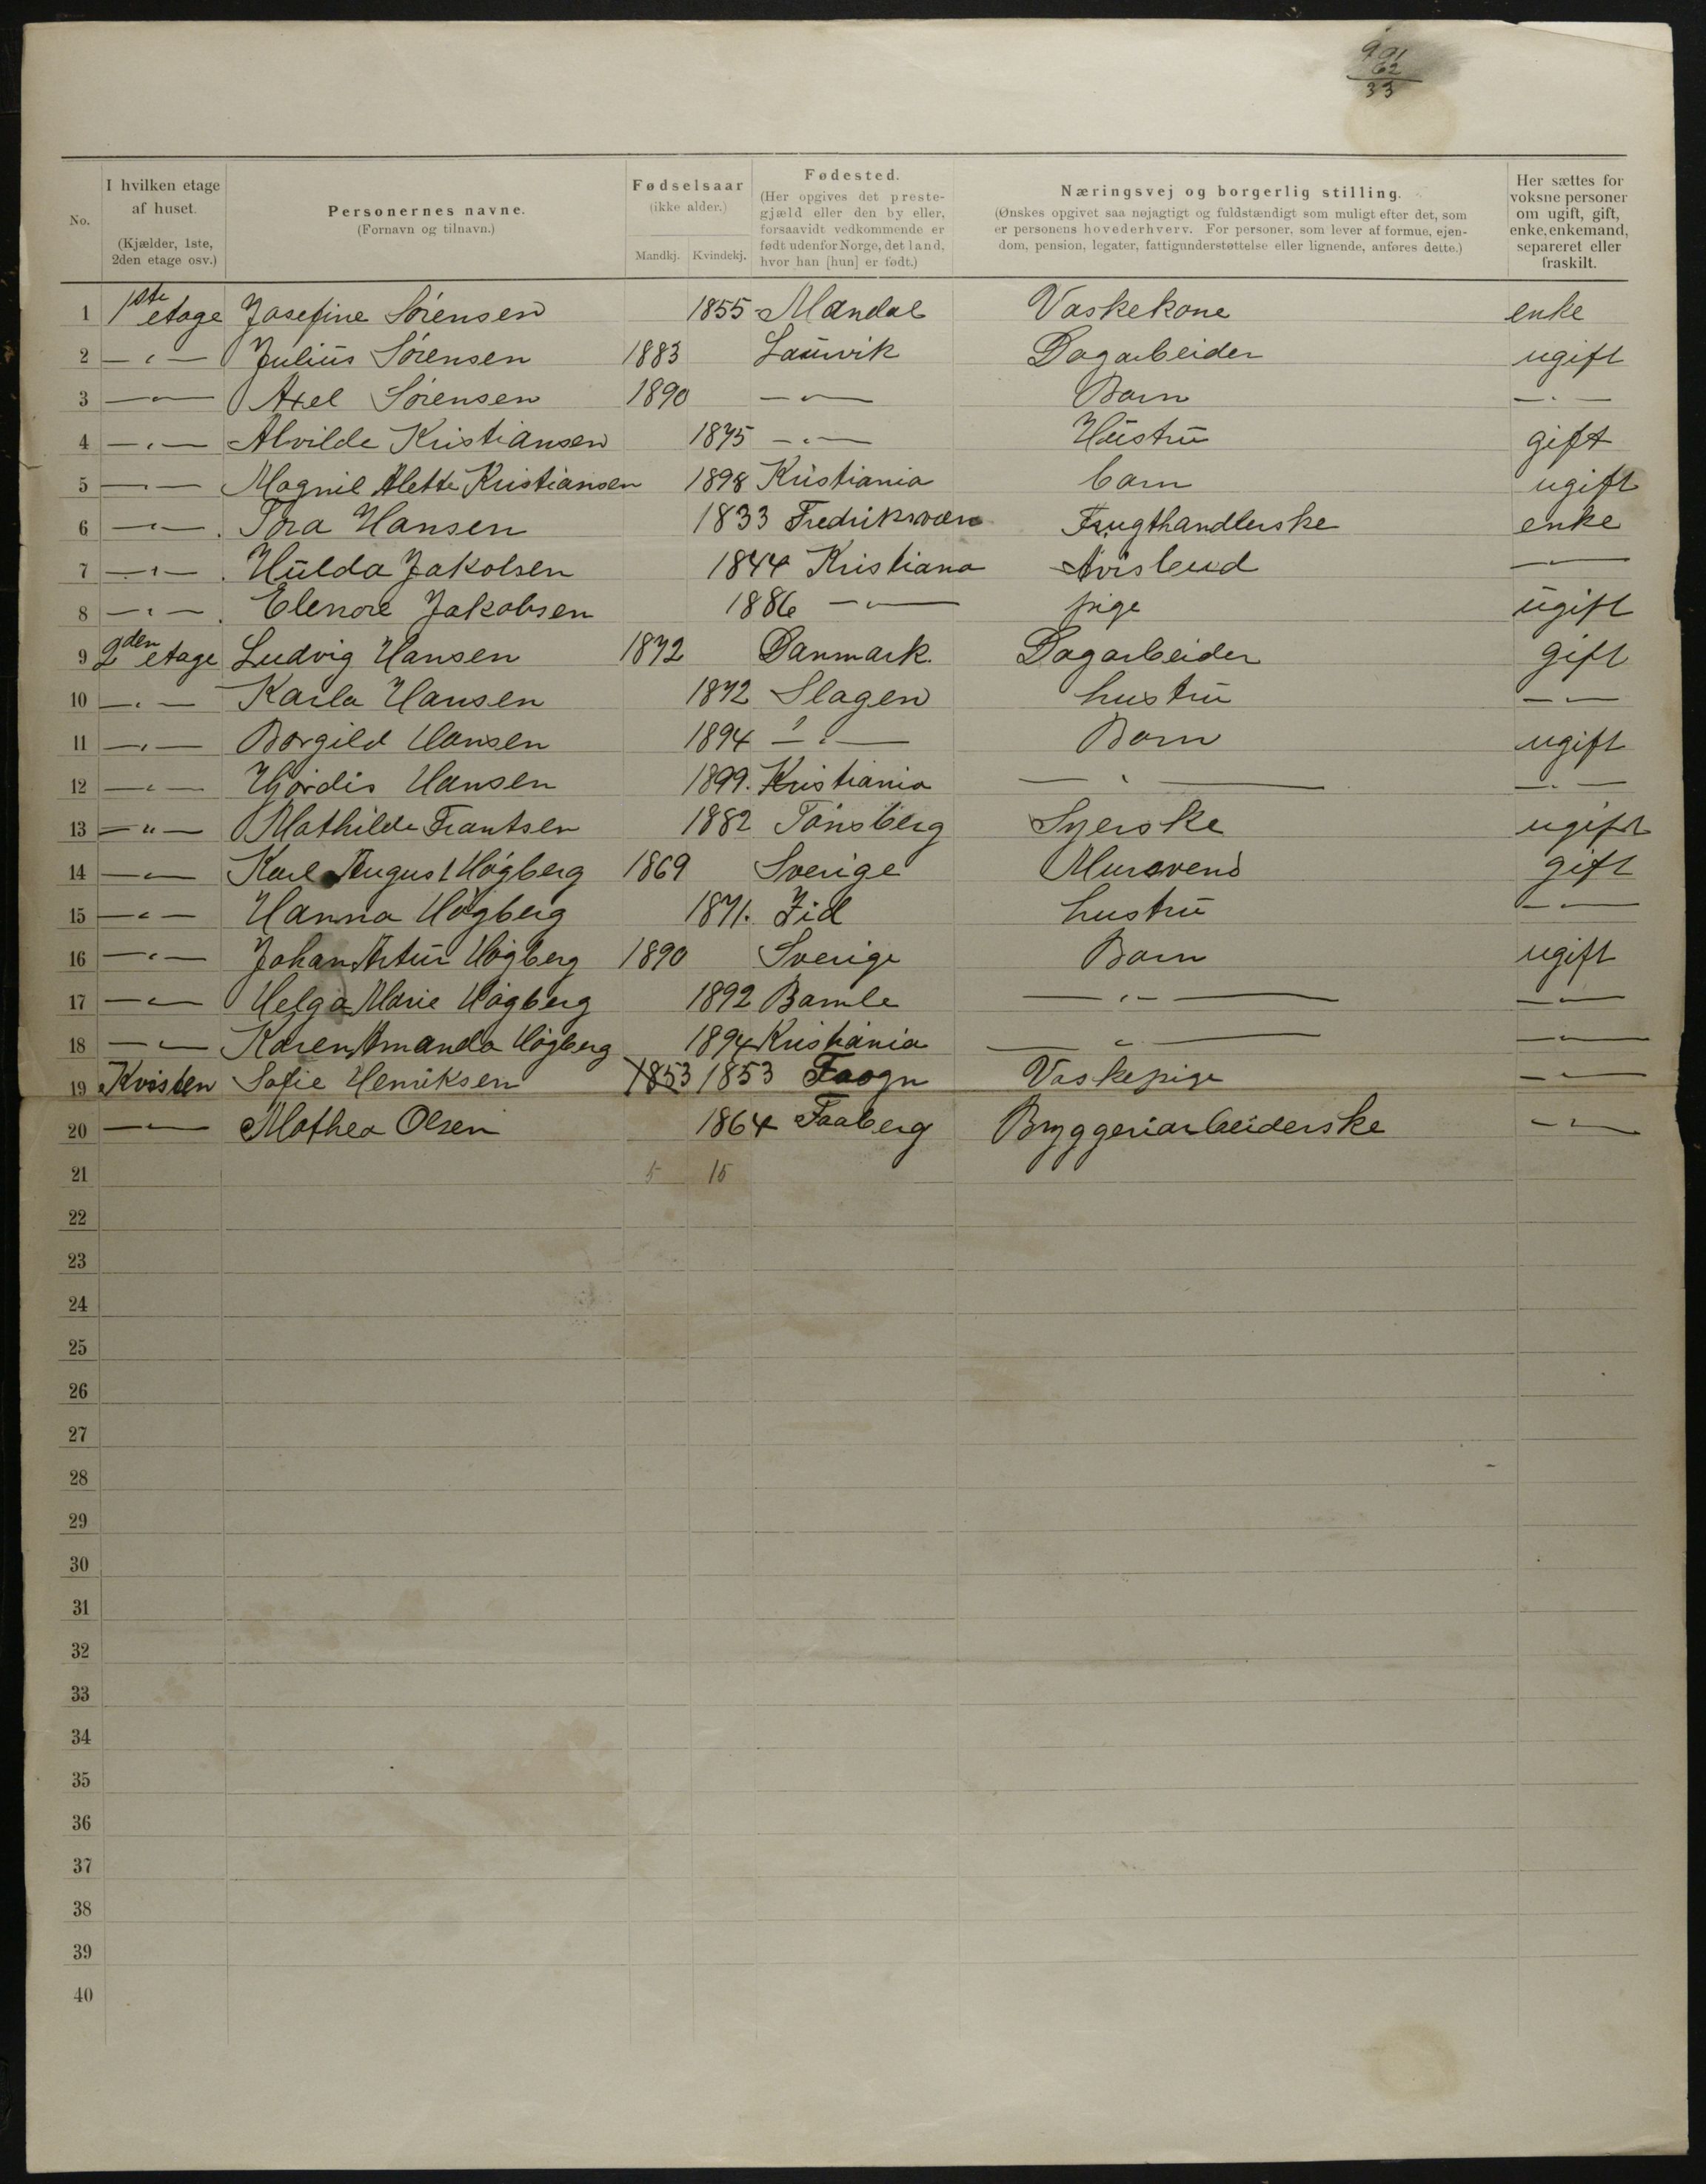 62
33
No.
I hvilken etage af huset.
(Kjælder, 1ste, 2den etage osv.)
Personernes navne.
(Fornavn og tilnavn.)
Fødselsaar
(ikke alder.)
Mandkj. Kvindekj.
Fødested.
(Her opgives det preste-
gjæld eller den by eller,
forsaavidt vedkommende er
født udenfor Norge, det land,
hvor han [hun] er født.)
Næringsvej og borgerlig stilling.
(Ønskes opgivet saa nøjagtigt og fuldstændigt som muligt efter det, som
er personens hovederhverv. For personer, som lever af formue, ejen-
dom, pension, legater, fattigunderstøttelse eller lignende, anføres dette.)
Her sættes for
voksne personer
om ugift, gift,
enke, enkemand,
separeret eller
fraskilt.
1 1ste etage Josefine Sørensen 1855 Mandal Vaskekone enke
2 — " — Julius Sørensen 1883 Laurvik Dagarbeider ugift
3 — " — Axel Sørensen 1890 — " — Barn — " —
4 — " — Alvilde Kristiansen 1875 — " — Hustru gift
5 — " — Magnil Alette Kristiansen 1898 Kristiania barn ugift
6 — " — Tora Hansen 1833 Fredriksværn Frugthandlerske enke
7 — " — Hulda Jakobsen 1844 Kristiana Avisbud — " —
8 — " — Elenore Jakobsen 1886 — " — pige ugift
9 2den etage Ludvig Hansen 1872 Danmark. Dagarbeider gift
10 — " — Karla Hansen 1872 Slagen hustru — " —
11 — " — Borgild Hansen 1894 — " — Barn ugift
12 — " — Hjørdis Hansen 1899. Kristiania — " — — " —
13 — " — Mathilde Frantsen 1882 Tønsberg Syerske ugift
14 — " — Karl August Høgberg 1869 Sverige Mursvend gift
15 — " — Hanna Høgberg 1871. Zid hustru — " —
16 — " — Johan Artur Høgberg 1890 Sverige Barn ugift
17 — " — Helga Marie Høgberg 1892 Bamle — " — — " —
18 — " — Karen Amanda Høgberg 1894 Kristiania — " — — " —
19 Kvisten Sofie Henriksen 1853 1853 Fraogn Vaskepige — " —
20 — " — Mathea Olsen 1864 Faaberg Bryggeriarbeiderske — " —
21 5 15
22
23
24
25
26
27
28
29
30
31
32
33
34
35
36
37
38
39
40